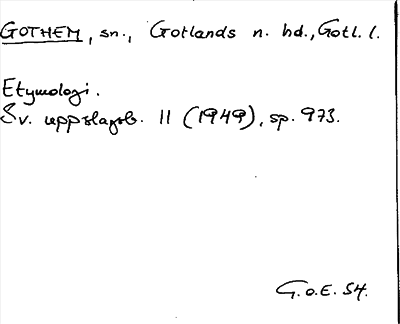 GOTHEM, sn., Gotlands n. hd., Gotl. l.
Etymologi.
Sv. uppslagsb. 11 (1949), sp. 973.
G.o.E. S4.